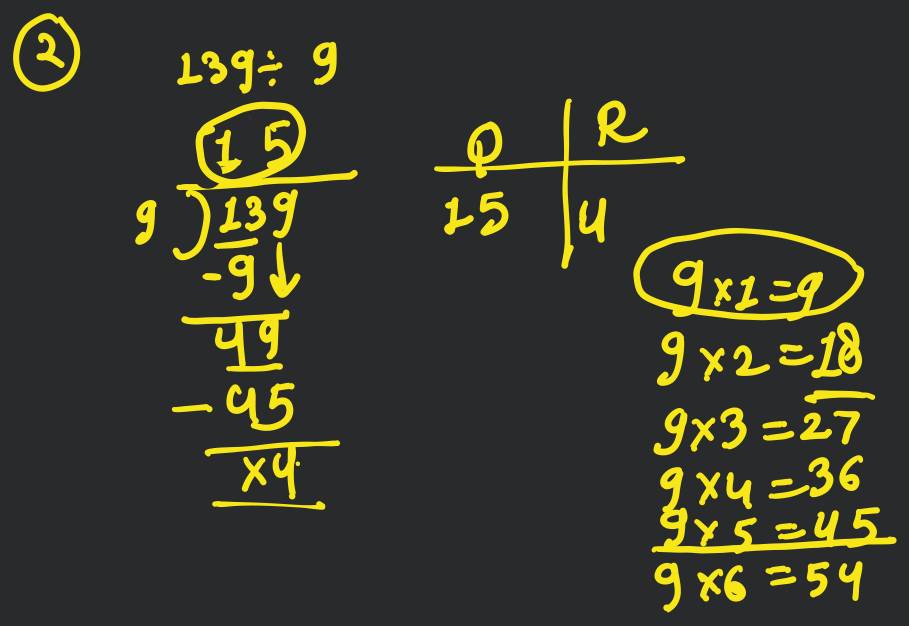 2
139÷ 9
15
9)139
-9↓
49
-45
×4
Q | R
15 | 4
9×1=9
9×2=18
9×3=27
9×4=36
9×5=45
9×6=54